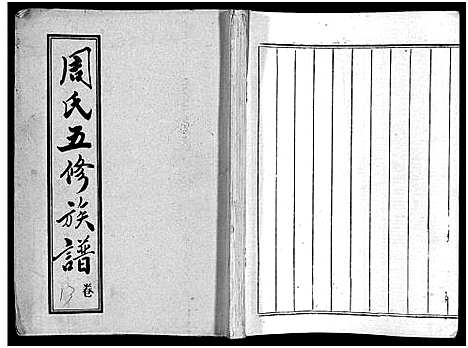 周氏五修族譜
卷
13